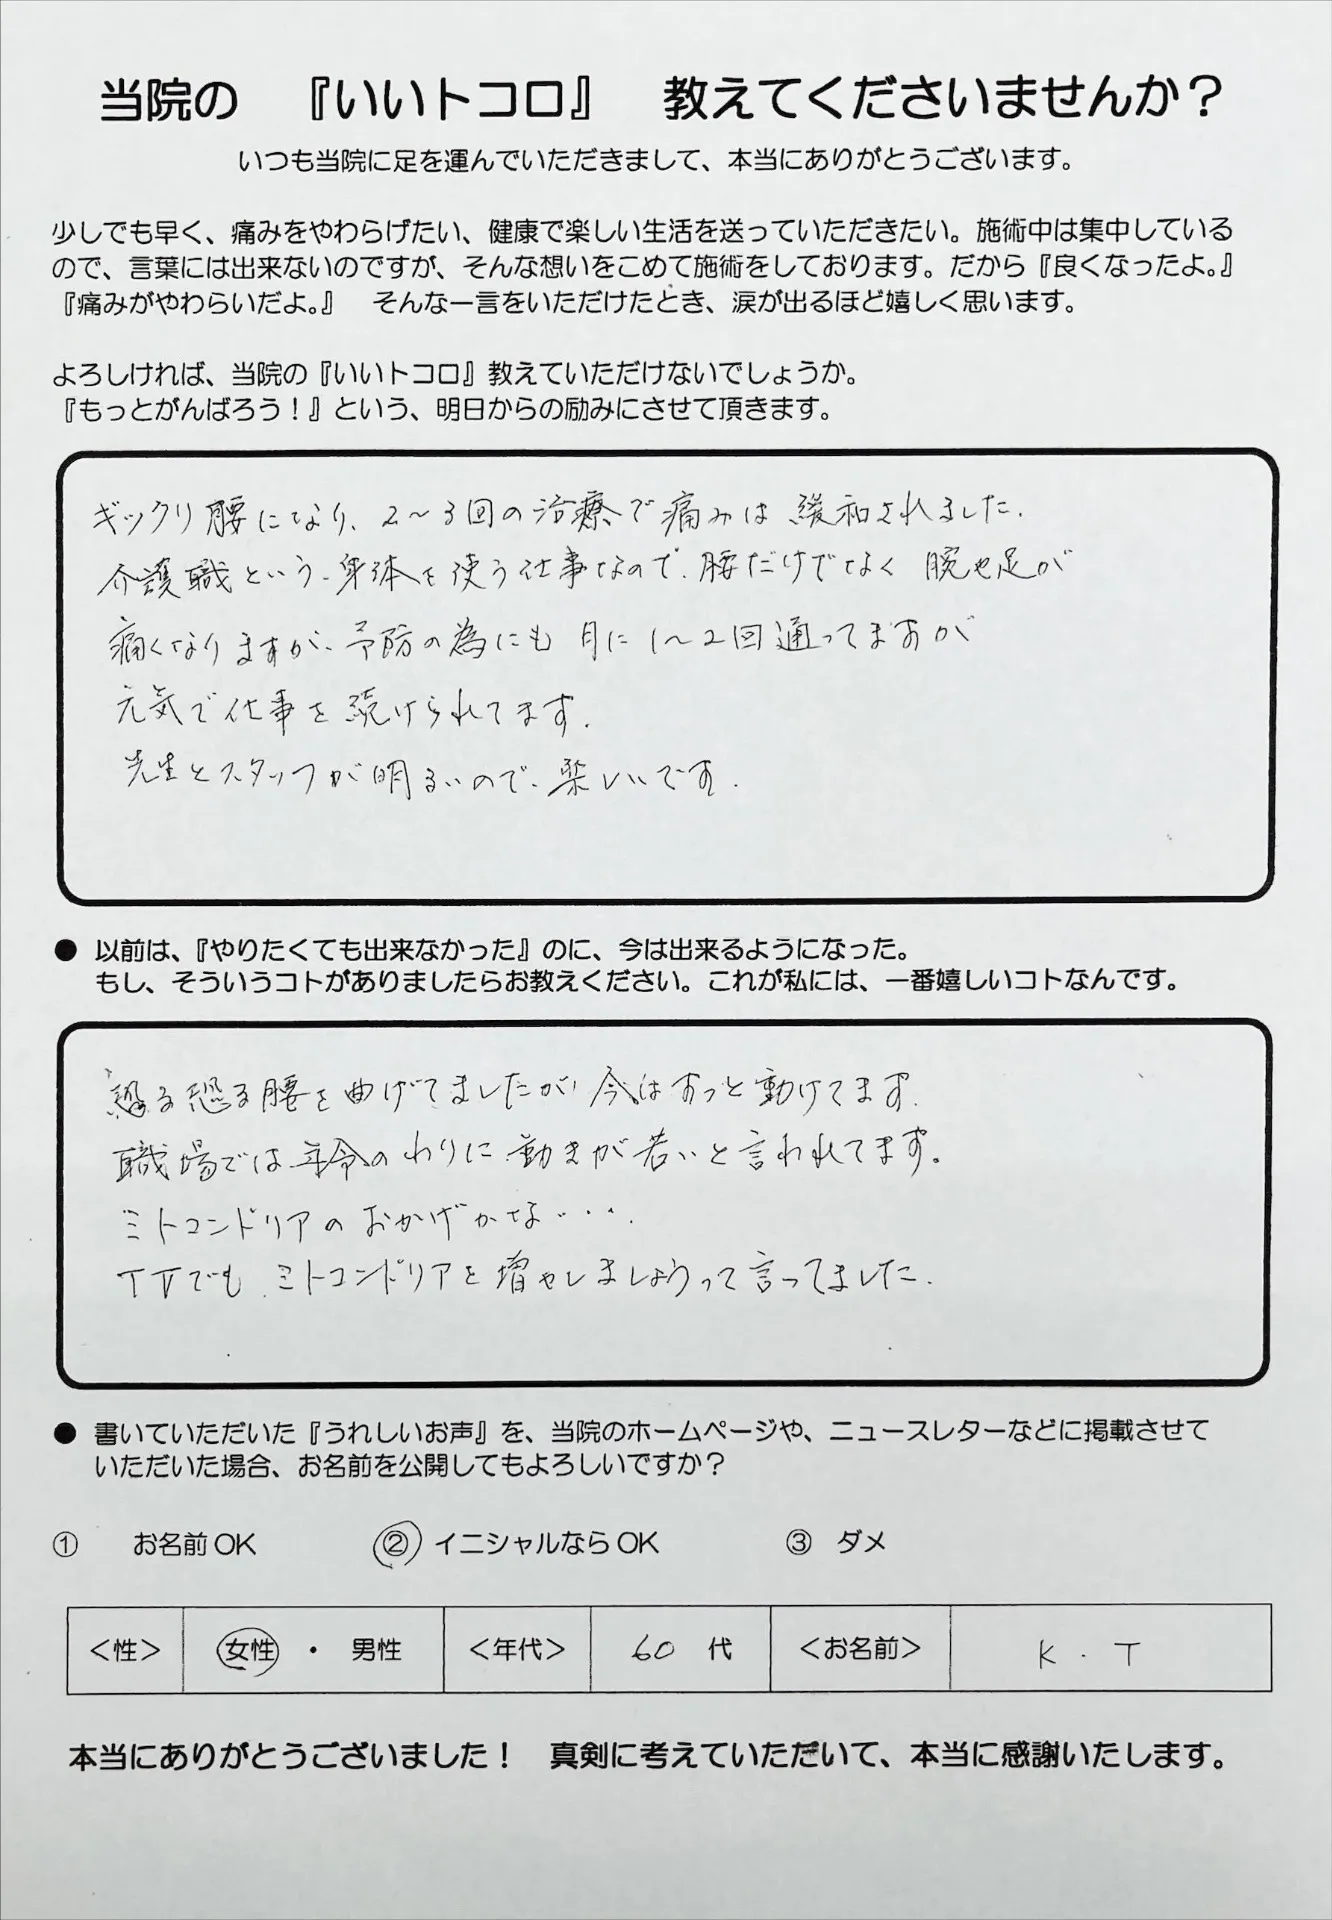 当院の 『いいトコロ』 教えてくださいませんか？
いつも当院に足を運んでいただきまして、本当にありがとうございます。
少しでも早く、痛みをやわらげたい、健康で楽しい生活を送っていただきたい。施術中は集中している
ので、言葉には出来ないのですが、そんな想いをこめて施術をしております。だから『良くなったよ。』
『痛みがやわらいだよ。』 そんな一言をいただけたとき、涙が出るほど嬉しく思います。
よろしければ、当院の『いいトコロ』教えていただけないでしょうか。
『もっとがんばろう！』という、明日からの励みにさせて頂きます。
ギックリ腰になり、2～3回の治療で痛みは緩和されました.
介護職という、身体を使う仕事なので、腰だけでなく腕や足が
痛くなりますが、予防の為にも月に1～2回通ってますが
元気で仕事を続けられてます.
先生とスタッフが明るいので、楽しいです.
● 以前は、『やりたくても出来なかった』のに、今は出来るようになった。
もし、そういうコトがありましたらお教えください。これが私には、一番嬉しいコトなんです。
恐る恐る腰を曲げてましたが今はすっと動けてます.
職場では年令のわりに動きが若いと言われてます。
ミトコンドリアのおかげかな・・・.
TVでもミトコンドリアを増やしましょうって言ってました.
● 書いていただいた『うれしいお声』を、当院のホームページや、ニュースレターなどに掲載させて
いただいた場合、お名前を公開してもよろしいですか？
① お名前OK ② イニシャルならOK ③ ダメ
＜性＞ 女性 ・ 男性 ＜年代＞ 60 代 ＜お名前＞ K . T
本当にありがとうございました！ 真剣に考えていただいて、本当に感謝いたします。